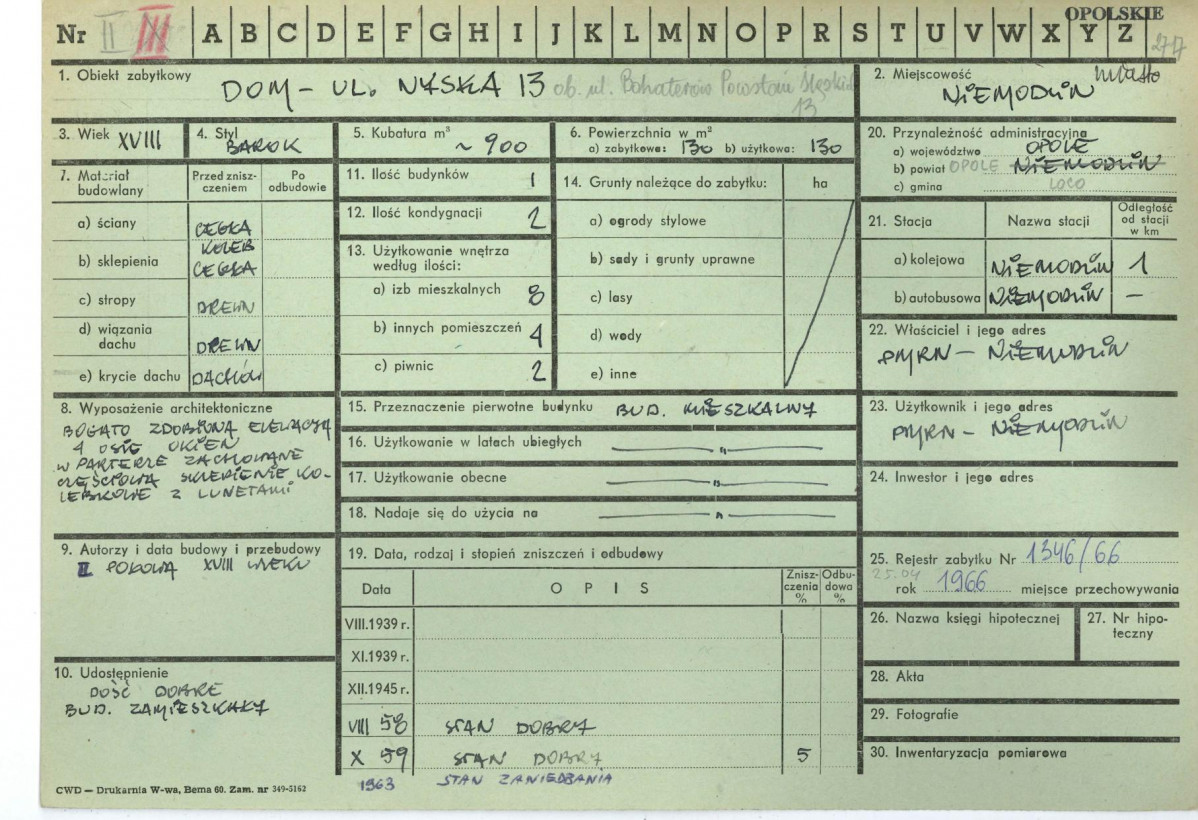 OPOLSKIE
Nr II III A B C D E F G H I J K L M N O P R S T U V W X Y Z 277
1. Obiekt zabytkowy
DOM – UL. NYSKA 13 ob. ul. Bohaterów Powstań Śląskich
13
2. Miejscowość miasto
NIEMODLIN
3. Wiek XVIII
4. Styl
BAROK
5. Kubatura m³
~ 900
6. Powierzchnia w m²
a) zabytkowa: 130 b) użytkowa: 130
20. Przynależność administracyjna
a) województwo OPOLE
b) powiat OPOLE NIEMODLIN
c) gmina LOCO
7. Materiał budowlany
Przed zniszczeniem
Po odbudowie
a) ściany CEGŁA
b) sklepienia KOLEB CEGŁA
c) stropy DREWN
d) wiązania dachu DREWN
e) krycie dachu DACHÓW
11. Ilość budynków 1
12. Ilość kondygnacji 2
13. Użytkowanie wnętrza
według ilości:
a) izb mieszkalnych 8
b) innych pomieszczeń 4
c) piwnic 2
14. Grunty należące do zabytku: ha
a) ogrody stylowe
b) sady i grunty uprawne
c) lasy
d) wody
e) inne
21. Stacja Nazwa stacji Odległość od stacji w km
a) kolejowa NIEMODLIN 1
b) autobusowa NIEMODLIN —
22. Właściciel i jego adres
PMRN – NIEMODLIN
8. Wyposażenie architektoniczne
BOGATO ZDOBIONA ELEWACJA
4 OSIE OKIEN
W PARTERZE ZACHOWANE
CZĘŚCIOWO SKLEPIENIE KO-
LEBKOWE Z LUNETAMI
15. Przeznaczenie pierwotne budynku BUD. MIESZKALNY
16. Użytkowanie w latach ubiegłych — " —
17. Użytkowanie obecne — " —
18. Nadaje się do użycia na — " —
23. Użytkownik i jego adres
PMRN – NIEMODLIN
24. Inwestor i jego adres
9. Autorzy i data budowy i przebudowy
II POŁOWA XVIII WIEKU
19. Data, rodzaj i stopień zniszczeń i odbudowy
Data O P I S Zniszczenia % Odbudowa %
VIII.1939 r.
XI.1939 r.
XII.1945 r.
VIII 58 STAN DOBRY
X 59 STAN DOBRY 5
1963 STAN ZANIEDBANIA
25. Rejestr zabytku Nr 1346/66
25.04
rok 1966 miejsce przechowywania
26. Nazwa księgi hipotecznej
27. Nr hipo-
teczny
28. Akta
29. Fotografie
30. Inwentaryzacja pomiarowa
10. Udostępnienie
DOŚĆ DOBRE
BUD. ZAMIESZKAŁY
CWD — Drukarnia W-wa, Bema 60. Zam. nr 349-5162